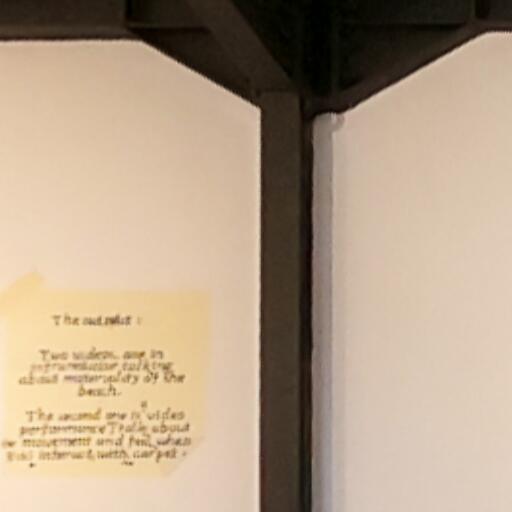 The out put :
Two videos, one in
introduction talking
about materiality of the
beach.
The second one is "video
performance" I talk about
movement and feel when
interact with carpet.